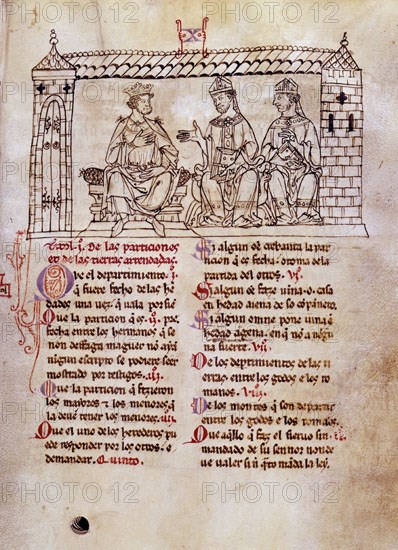 X
De las particiones
et de las tierras arrendadas.
Que el departimiento.
q̄ sue fecho de las he
dades una uez. q̄ uala por sie
Que la particion q̄ es
fecha entre los hermanos q̄ se
non desfaga maguer no aya
ningun escripto se podiere seer
mostrado por testigos. iii.
Que la particion q̄ fizieron
los mayores & los menores. q̄
la deue tener los menores. iiii.
Que el uno de los herederos pu
ede responder por los otros. o
demandar. Quinto.
Si algun ōe crebanta la par
ticion q̄ es fecha. o toma de la
partida del otro. vi.
Si algun ōe faze uina. o. casa
en hedad aiena de so conpanero.
Si algun omne pone uina e
hedad agena. en q̄ no a negu
na suerte. vii.
De los departimientos de las ti
erras. entre los godos e los ro
manos. viii.
De los montes q̄ son departidos
entre los godos e los romanos.
Que aq̄llo q̄ faz el sieruo sin
mandado de su sennor non de
ue ualer si nō q̄ to māda la ley.
PHOTO 12